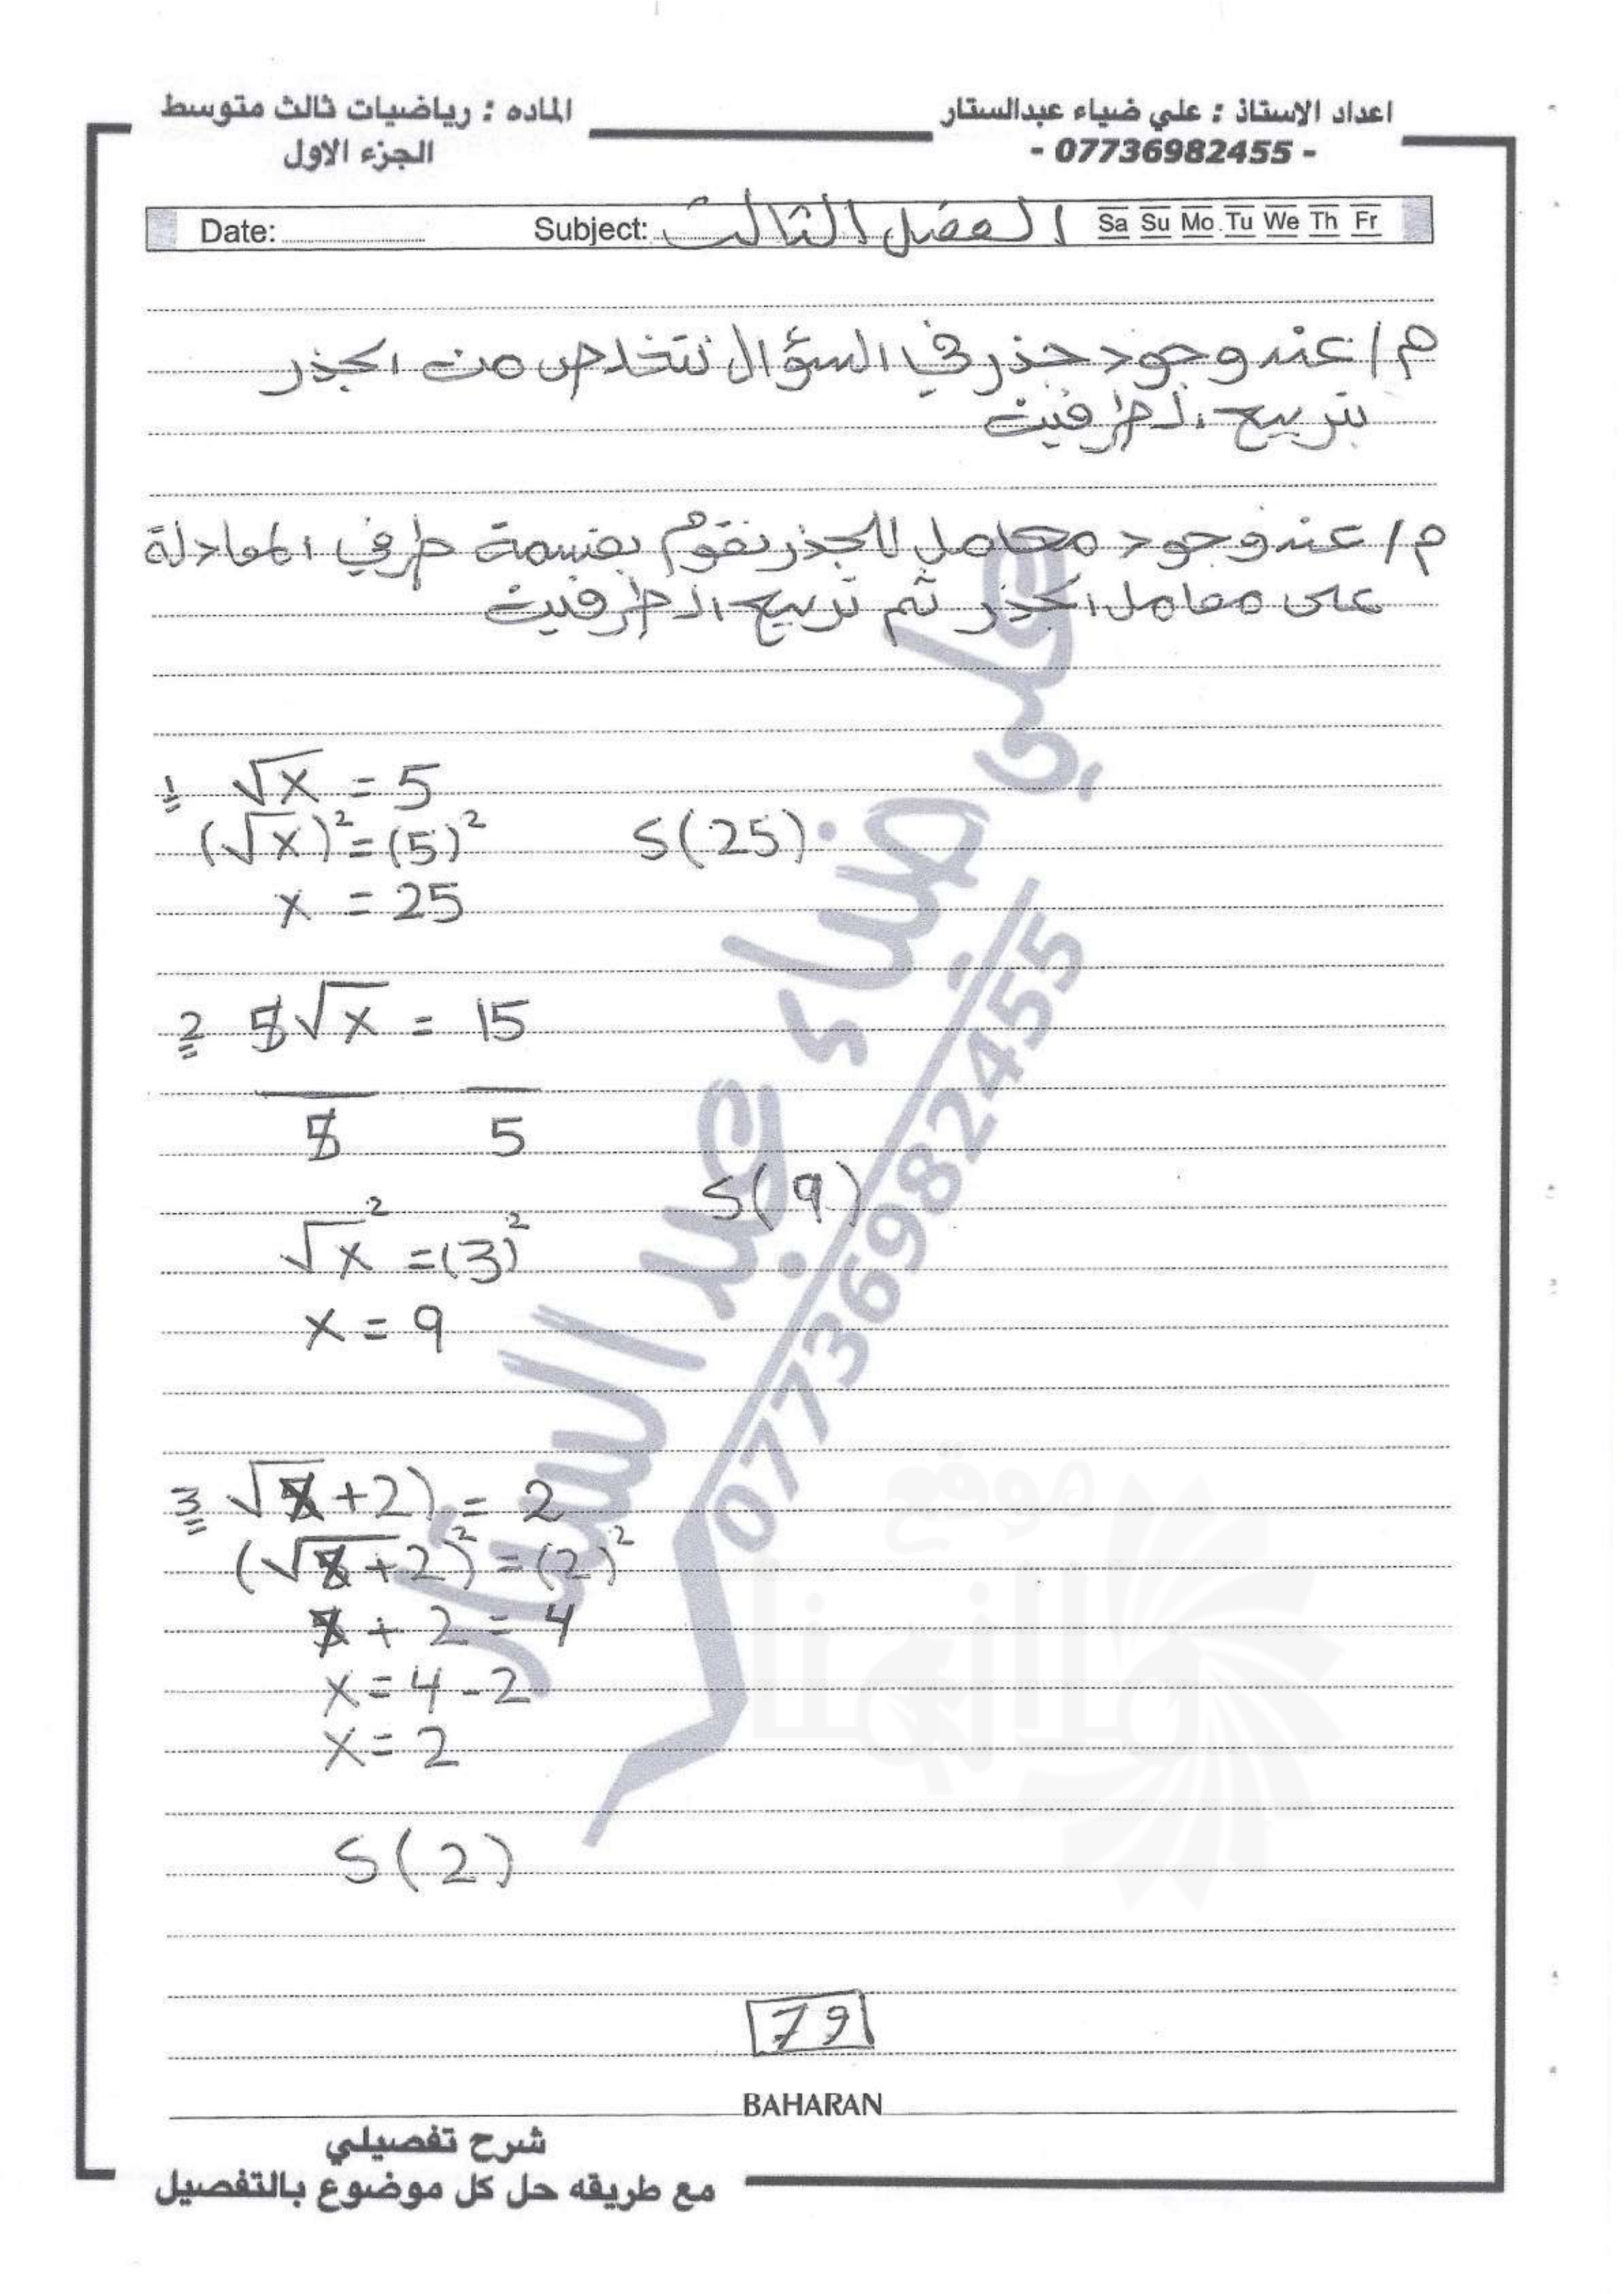 اعداد الاستاذ : علي ضياء عبدالستار
- 07736982455 -
الماده : رياضيات ثالث متوسط
الجزء الاول
Date: Subject: الفصل الثالث Sa Su Mo Tu We Th Fr
م/ عند وجود جذر في السؤال نتخلص من الجذر
بتربيع الطرفين
م/ عند وجود معامل للجذر نقوم بقسمة طرفي المعادلة
على معامل الجذر ثم تربيع الطرفين
1 √x = 5
(√x)² = (5)² S(25)
x = 25
2 5√x = 15
5 5
S(9)
√x² = (3)²
x = 9
3 √x+2) = 2
(√x+2)² = (2)²
x + 2 = 4
x = 4 - 2
x = 2
S(2)
79
BAHARAN
شرح تفصيلي
مع طريقه حل كل موضوع بالتفصيل
علي ضياء عبد الستار
07736982455
موقع